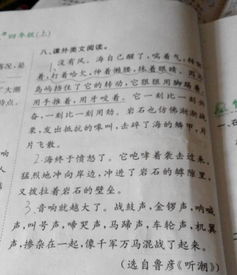 四年级(上)
八、课外美文阅读。
1.没有风。海自己醒了,喘着气,转
着,打着哈欠,伸着懒腰,抹着眼睛。
岛屿挡住了它的转动,它狠狠用脚踢着,
用手推着,用牙咬着。它一刻比一刻兴
奋,一刻比一刻用劲。岩石也仿佛渐渐战
,发出抵抗的嗥叫,击碎了海的鳞甲,片
片飞散。
2.海终于愤怒了。它咆哮着袭击过来,
猛烈地冲向岸边,冲进了岩石的罅隙里,
又拨拉着岩石的壁垒。
3.音响就越大了。战鼓声,金锣声,呐喊
声,叫号声,啼哭声,马蹄声,车轮声,机翼
声,掺杂在一起,像千军万马混战了起来。
(选自鲁彦《听潮》)